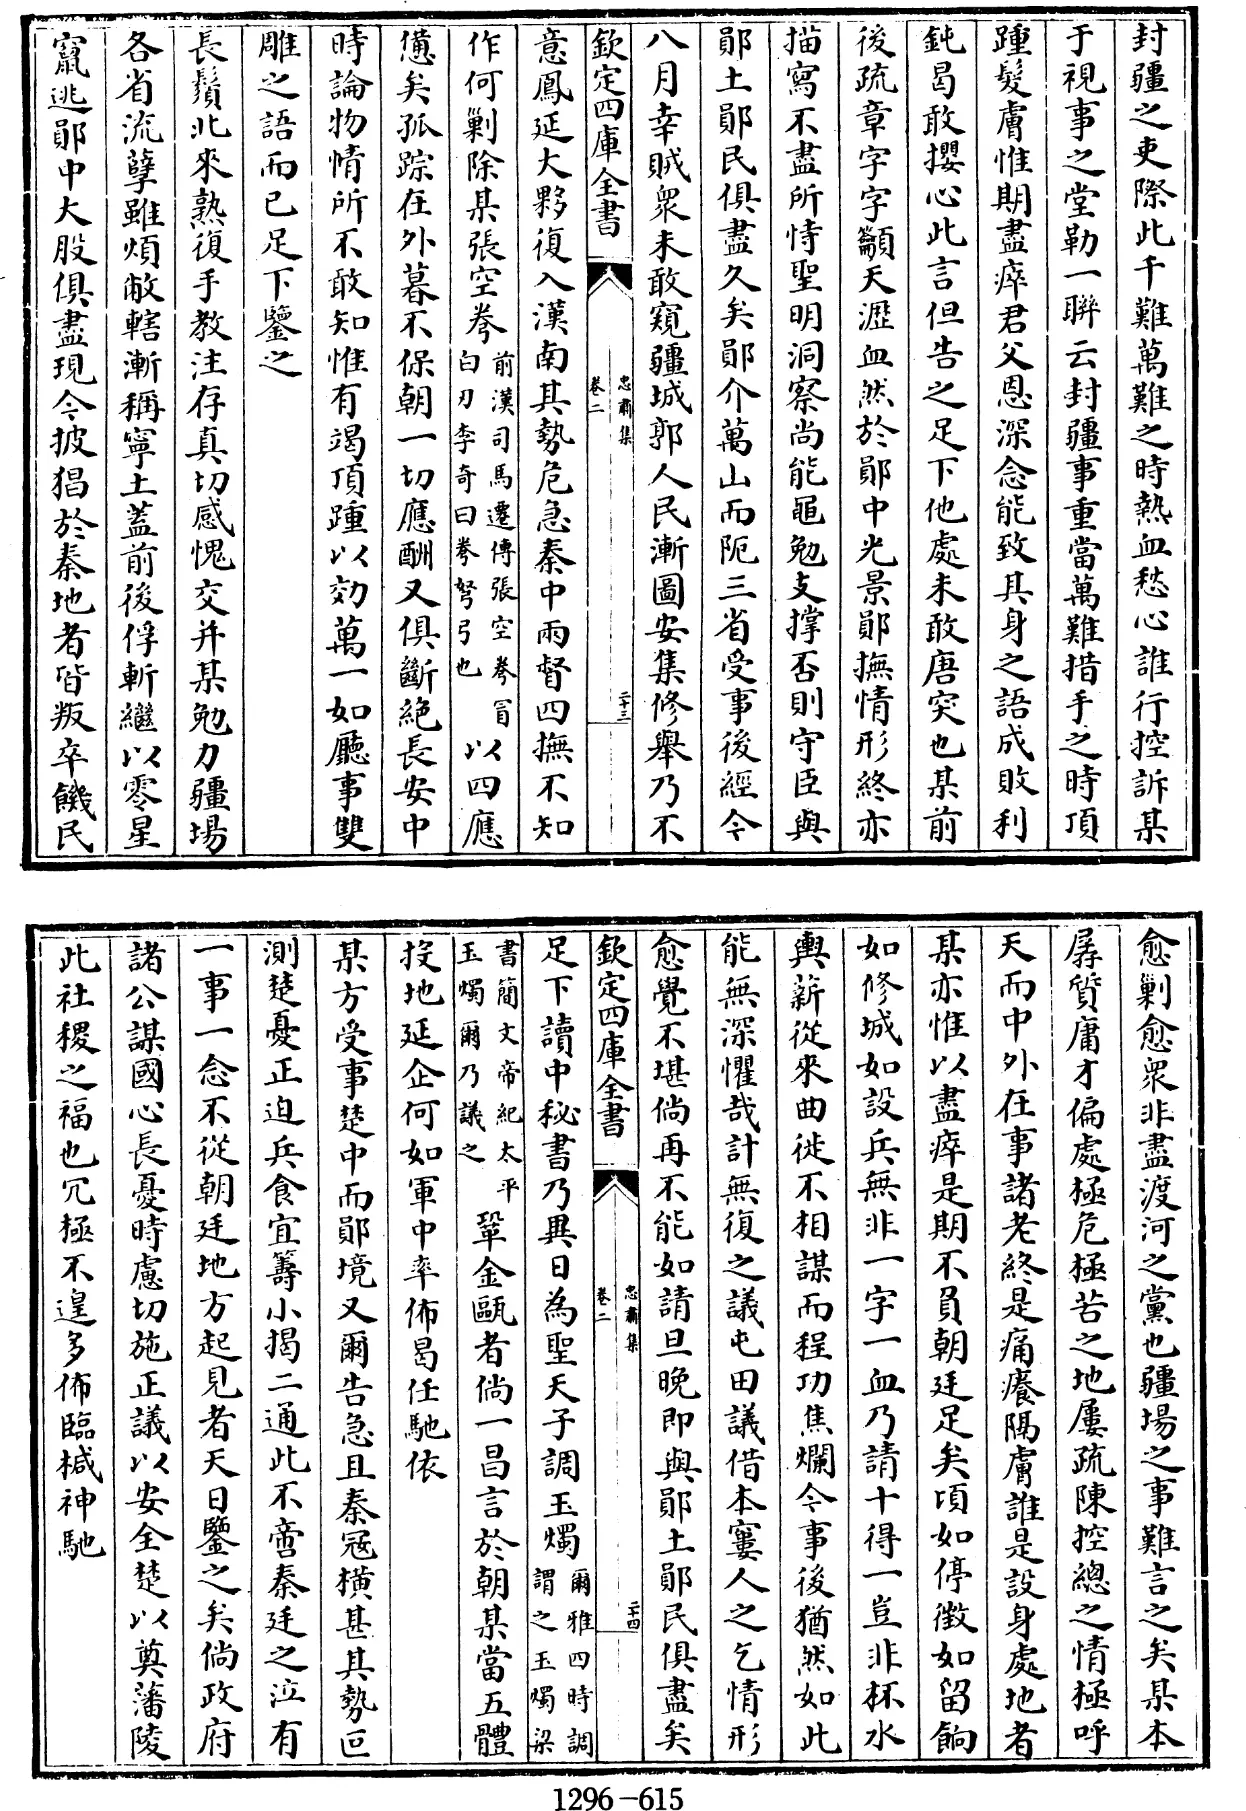 封疆之吏際此千難萬難之時熱血愁心誰行控訴某
于視事之堂勒一聯云封疆事重當萬難措手之時頂
踵髮膚惟期盡瘁君父恩深念能致其身之語成敗利
鈍曷敢攖心此言但告之足下他處未敢唐突也某前
後疏章字字籲天瀝血然於鄖中光景鄖撫情形終亦
描寫不盡所恃聖明洞察尚能黽勉支撑否則守臣與
鄖土鄖民俱盡久矣鄖介萬山而阨三省受事後經今
八月幸賊衆未敢窺疆城郭人民漸圖安集修舉乃不
欽定四庫全書
忠肅集
卷二
二十三
意鳳延大夥復入漢南其勢危急秦中兩督四撫不知
作何剿除某張空弮前漢司馬遷傳張空弮冒白刃李奇曰弮弩弓也以四應
憊矣孤踪在外暮不保朝一切應酬又俱斷絶長安中
時論物情所不敢知惟有竭頂踵以効萬一如廳事雙
雕之語而已足下鑒之
長鬚北來熟復手教注存真切感愧交并某勉力疆場
各省流孽雖煩敝轄漸稱寧土蓋前後俘斬繼以零星
竄逃鄖中大股俱盡現今披猖於秦地者皆叛卒饑民
愈剿愈衆非盡渡河之黨也疆場之事難言之矣某本
孱質庸才偏處極危極苦之地屢疏陳控總之情極呼
天而中外在事諸老終是痛癢隔膚誰是設身處地者
某亦惟以盡瘁是期不負朝廷足矣項如停徵如留餉
如修城如設兵無非一字一血乃請十得一豈非杯水
輿薪從來曲徙不相謀而程功焦爛今事後猶然如此
能無深懼哉計無復之議屯田議借本窶人之乞情形
愈覺不堪倘再不能如請旦晚即與鄖土鄖民俱盡矣
欽定四庫全書
忠肅集
卷二
二十四
足下讀中秘書乃異日為聖天子調玉燭爾雅四時調謂之玉燭梁
書簡文帝紀太平玉燭爾乃議之鞏金甌者倘一昌言於朝某當五體
投地延企何如軍中率佈曷任馳依
某方受事楚中而鄖境又爾告急且秦冦横甚其勢叵
測楚憂正迫兵食宜籌小揭二通此不啻秦廷之泣有
一事一念不從朝廷地方起見者天日鑒之矣倘政府
諸公謀國心長憂時慮切施正議以安全楚以奠藩陵
此社稷之福也冗極不遑多佈臨楲神馳
1296-615